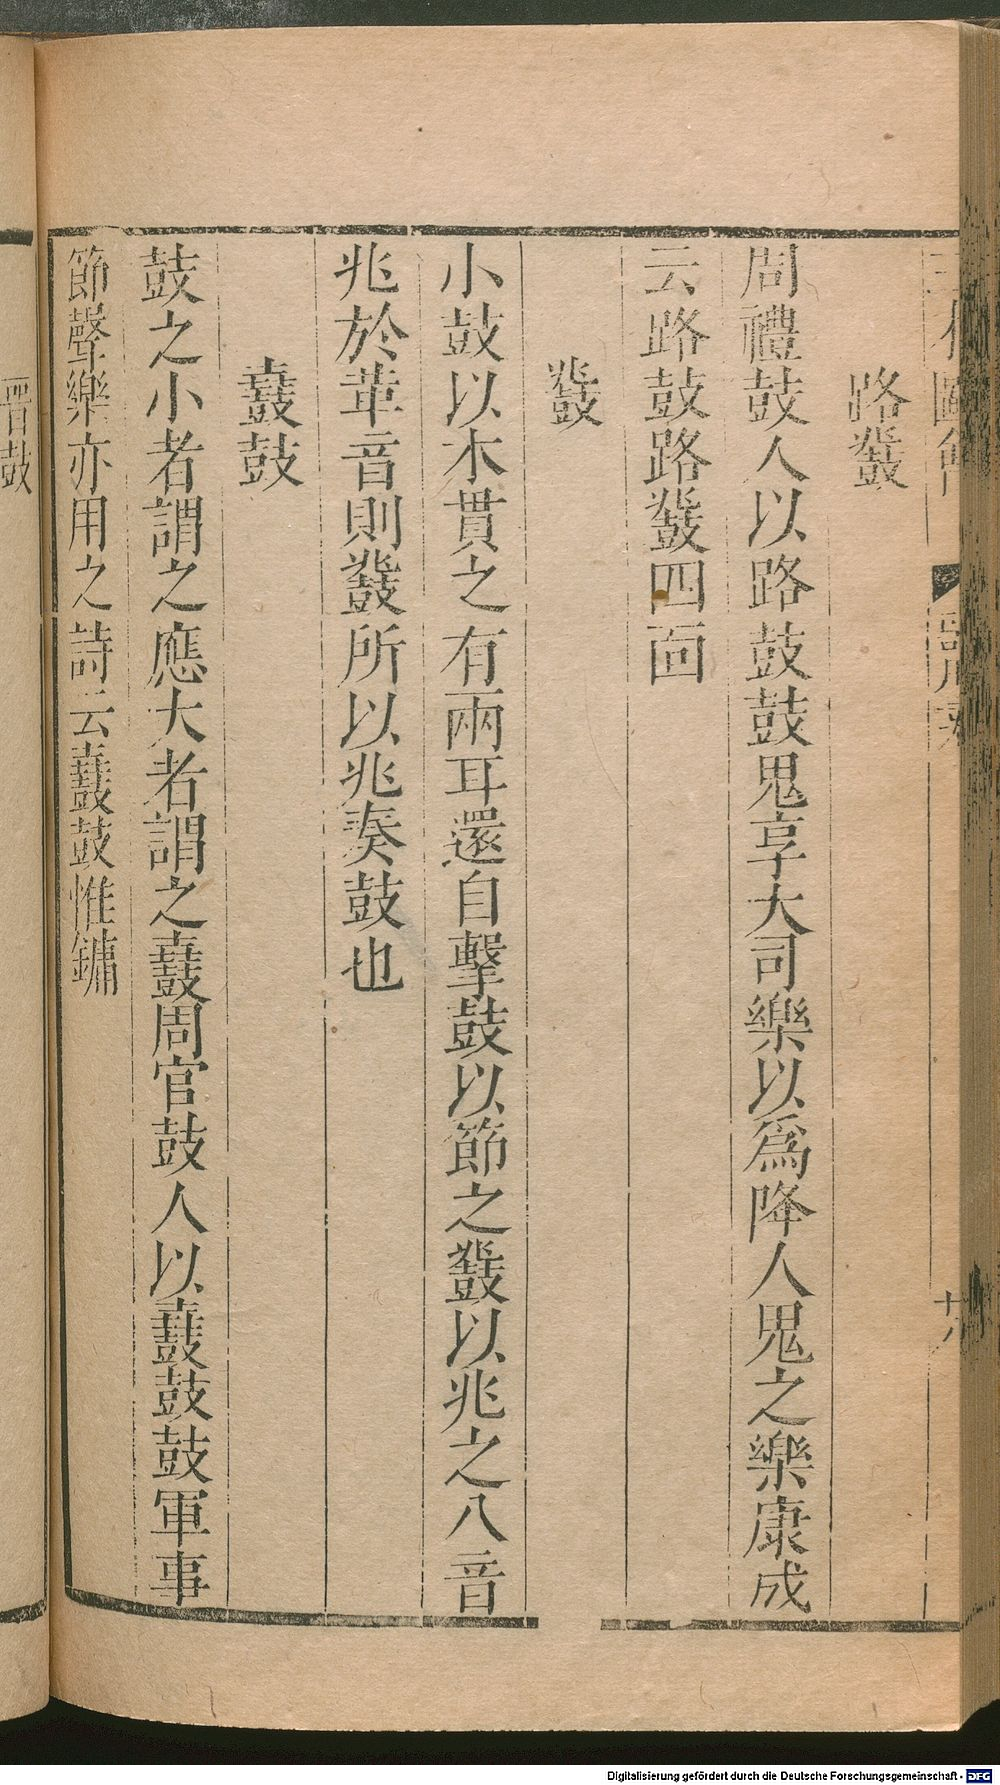 路鼗
周禮鼓人以路鼓鼓鬼享大司樂以爲降人鬼之樂康成
云路鼓路鼗四面
鼗
小鼓以木貫之有兩耳還自擊鼓以節之鼗以兆之八音
兆於革音則鼗所以兆奏鼓也
鼖鼓
鼓之小者謂之應大者謂之鼖周官鼓人以鼖鼓鼓軍事
節聲樂亦用之詩云鼖鼓惟鏞
晋鼓
Digitalisierung gefördert durch die Deutsche Forschungsgemeinschaft - DFG